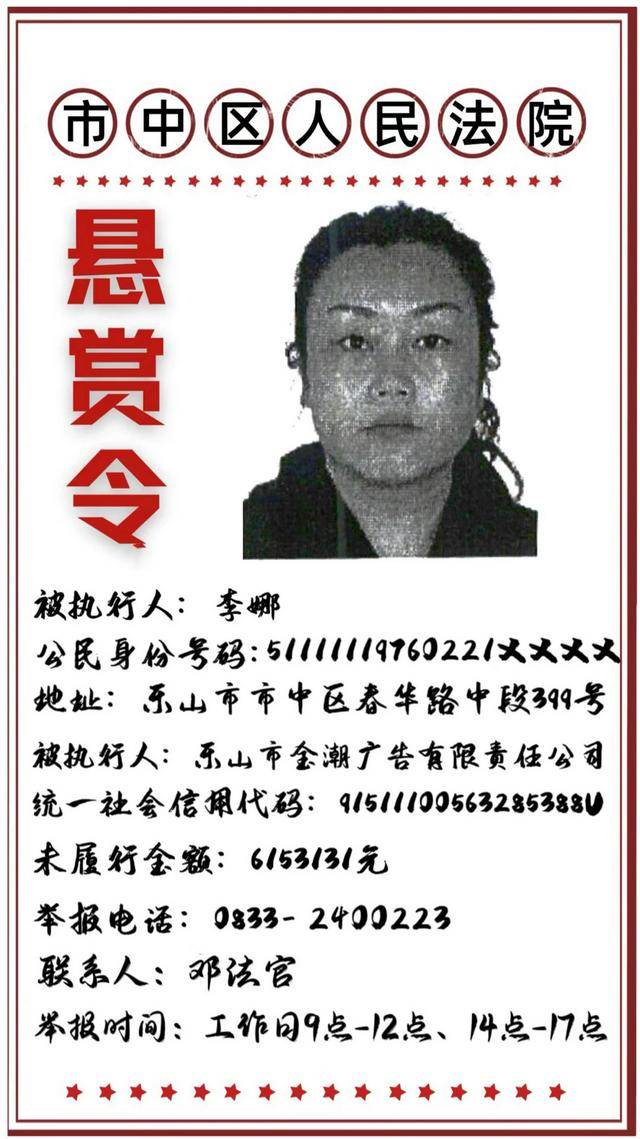 市中区人民法院
悬赏令
被执行人：李娜
公民身份号码:51111119760221XXXX
地址：乐山市市中区春华路中段399号
被执行人：乐山市金潮广告有限责任公司
统一社会信用代码：91511100563285388U
未履行金额：6153131元
举报电话：0833-2400223
联系人：邓法官
举报时间：工作日9点-12点、14点-17点